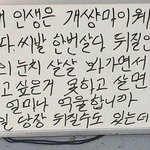 인생은 개상마이웨
다. 씨발 한번살다 뒤질인
의 눈치 살살 봐가면서
고싶은거 못하고 살면
얼마나 억울합니까
당장 뒤질수도 있는데